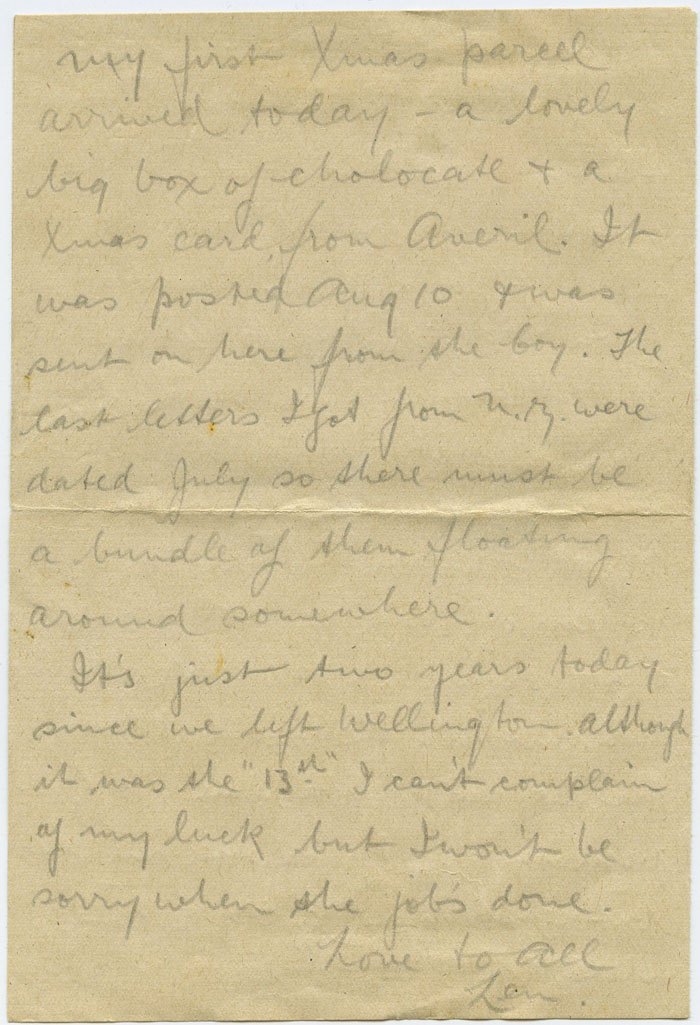 My first Xmas parcel
arrived today – a lovely
big box of cholocate & a
Xmas card, from Averil. It
was posted Aug 10 & was
sent on here from the Coy. The
last letters I got from N.Z. were
dated July so there must be
a bundle of them floating
around somewhere.
It's just two years today
since we left Wellington. Although
it was the "13th" I can't complain
of my luck but I won't be
sorry when the job's done.
Love to All
Len.